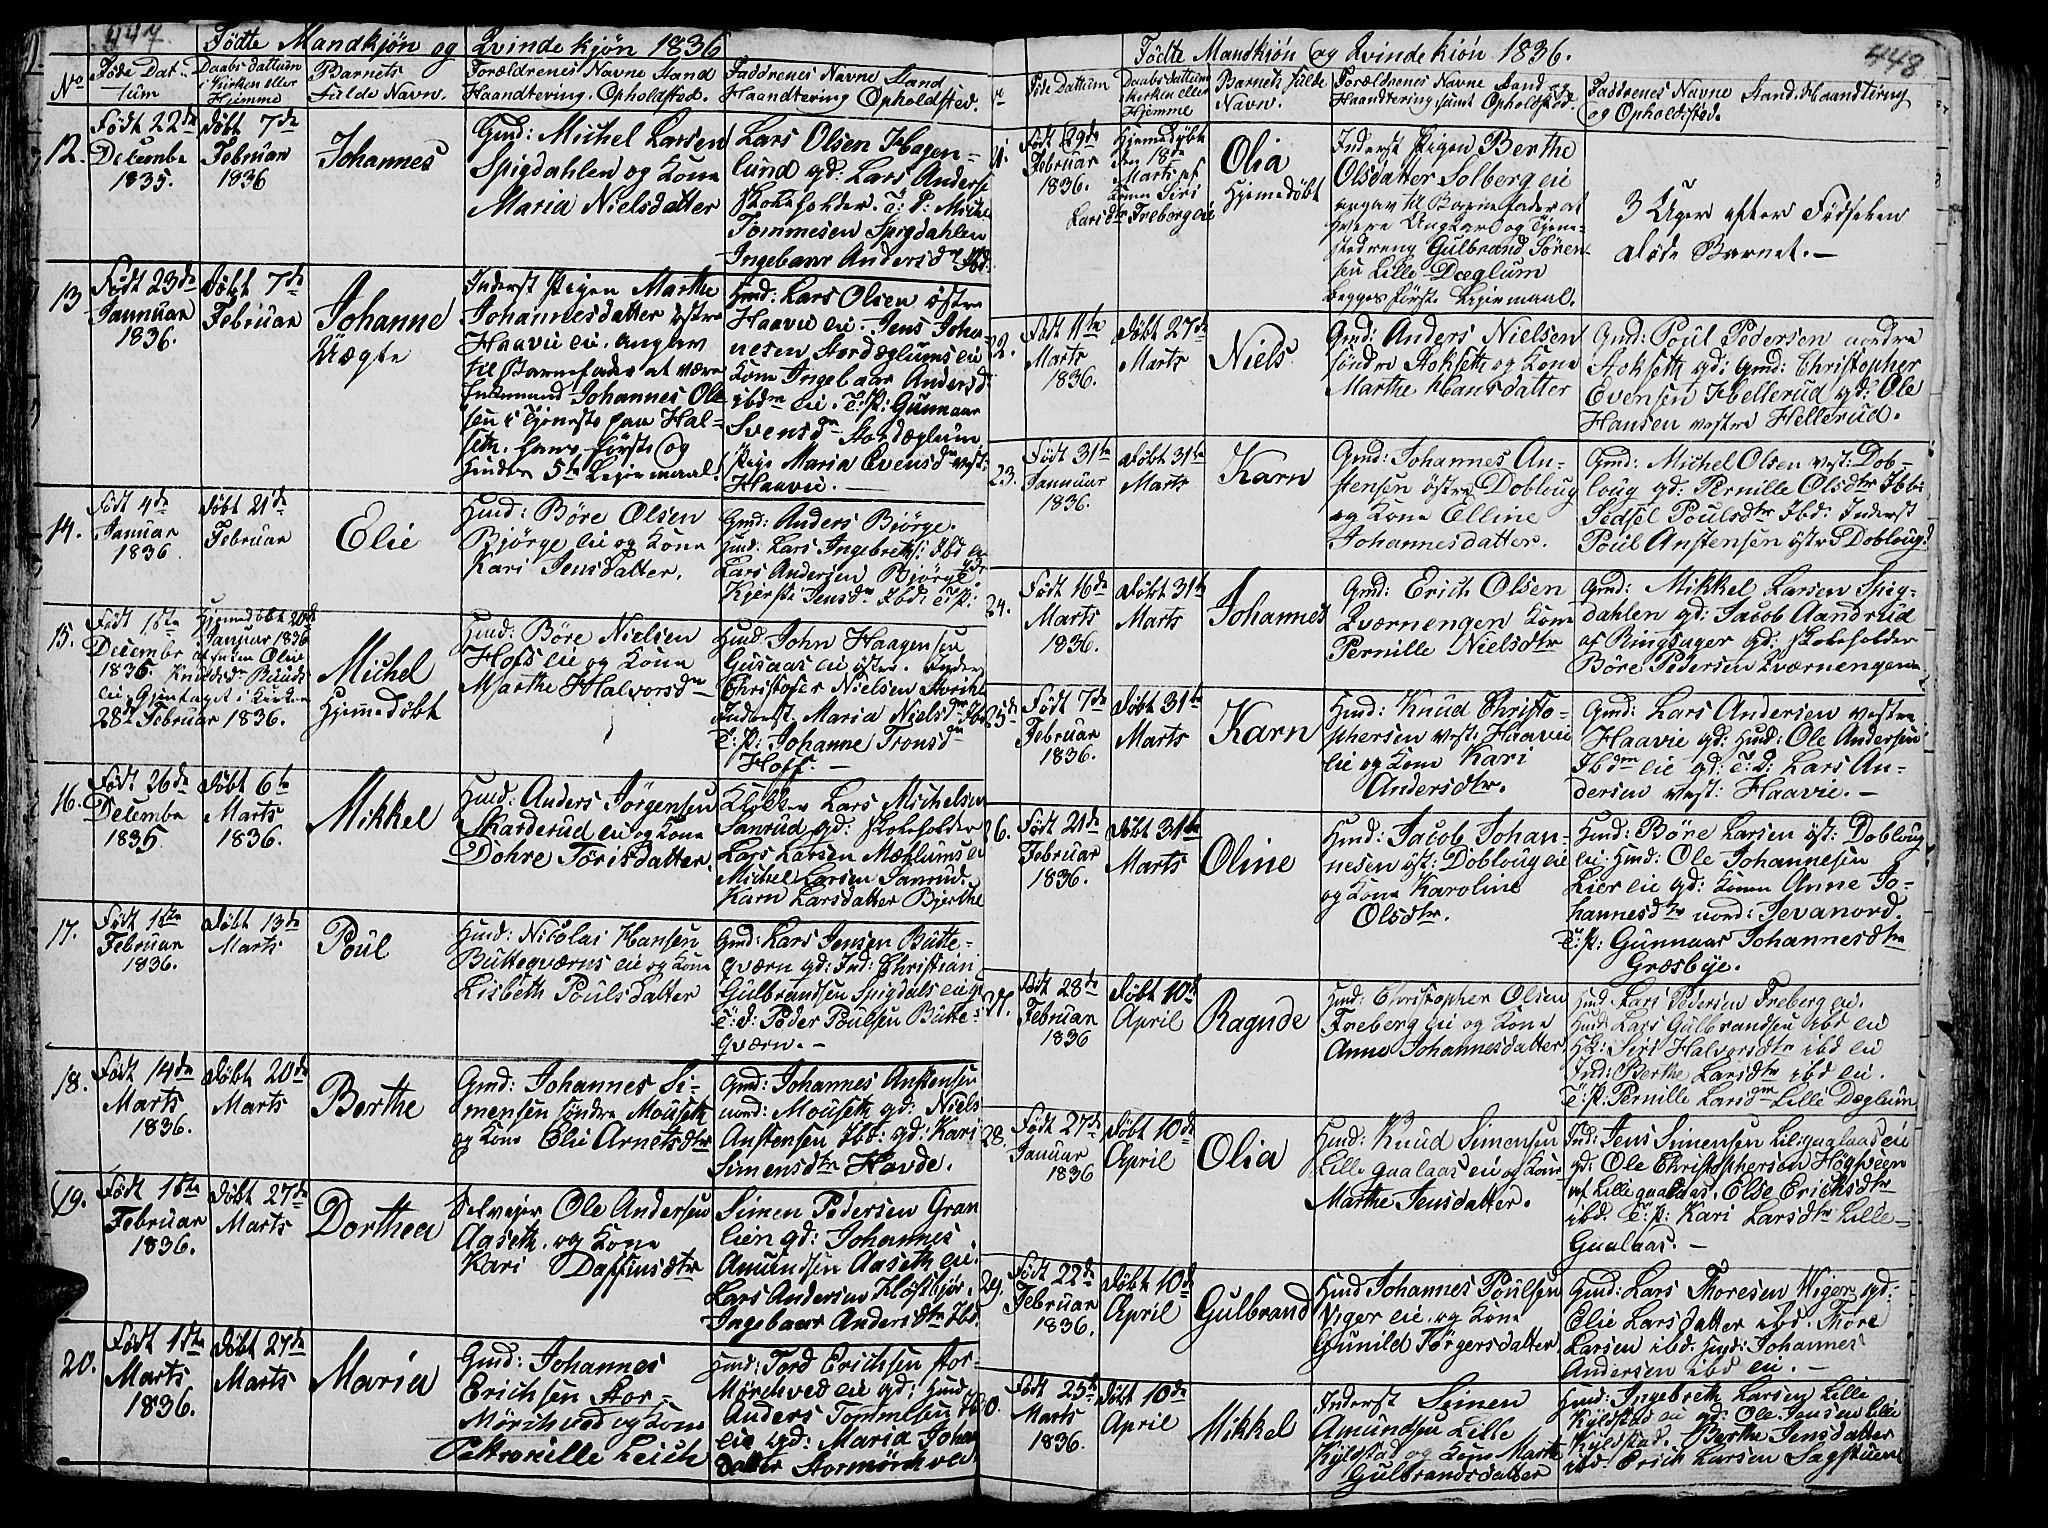 447.
Födte Mandkjön og Qvindekjön 1836
No
Föde Dat-
tum
Daabs dattum
i Kirken eller
Hjemme
Barnets
fulde Navn.
Forældrenes Navne Stand
Haandtering. Opholdsted.
Faddrenes Navne Stand
Haandtering Opholdsted.
12.
Född 22de
Decembr
1835.
Döbt 7de
Februar
1836
Johannes
Gmd: Michel Larsen
Spigdahlen og Kone
Maria Nielsdatter
Lars Olsen Hagen-
lund gd: Lars Anders
Skoleholder. T: D: Michel
Tommesen Spigdahlen
Ingebaar Andersdr Ibd:
13
Födt 23de
Januar
1836.
Döbt 7de
Februar
Johanne
Uægte
Inderst Pigen Marthe
Johannesdatter östre
Haavie eie, angav
til Barnefader at være
Johannes Ole
sen i Tjeneste paa Hal-
seth, hans förste og
hendes 5te Leiermaal.
Hmd: Lars Olsen östre
Haavie eie. Jens Joha
nesen Stordæglums eie
Kone Ingebaar Andersd
ibdm eie. T: P: Gunnaar
Svensdr Stordæglum
Pige Maria Evensdr vest:
Haavie. —
14.
Födt 4de
Januar
1836.
Döbt 21de
Februar
Elie
Hmd: Böre Olsen
Bjørge eie og Kone
Kari Jensdatter.
Gmd: Anders Bjørge.
Hmd: Lars Ingebretts: Ibd eie
Lars Andersen Bjørge
Kjersti Jensdr Ibd: T: P:
15.
Födt 1ste
Decembr
1835.
Hjemedöbt 20de
Januar 1836
af Olia
Knudsdr
eie Gjentaget i Kirken
28de Februar 1836.
Michel
Hjemedöbt
Hmd: Böre Nielsen
Hofs eie og Kone
Marthe Halvorsdr
Hmd John Haagensen
Gusaas eie östre. Inders
Christofer Nielsen
Inderst. Maria Nielsdr Ibd
T: P: Johanne Tronsdr
Hoff. —
16.
Födt 26de
Decembe
1835
Döbt 6te
Marts
1836.
Mikkel
Hmd: Anders Jörgensen
Skarderud eie og Kone
Dohre Torisdatter.
Klokker Lars Michelsen
Sanrud gd: Skoleholder
Lars Larsen Mæhlums ei
Michel Larsen Sanrud.
Karn Larsdatter Bjerke
17.
Födt 1ste
Februar
1836.
Döbt 13de
Marts
Poul
Hmd: Nicolai Hansen
Butteqværns eie og Kone
Lisbeth Poulsdatter
Gmd: Lars Jensen Butte-
qværn gd: Ind: Christian
Gulbrandsen Spigdals eie gd
T: d: Peder Poulsen Butte-
qværn. —
18.
Födt 14de
Marts
1836.
Döbt 20de
Marts
Berthe
Gmd: Johannes Si-
mensen söndre Mouseth
og Kone Elie Arnetsdtr
Gmd: Johannes Anstensen
nord: Mouseth gd: Niels
Anstensen Ibd: gd: Kari
Simensdtr Hovde.
19.
Födt 1ste
Februar
1836.
Döbt 27de
Marts
Dorthea
Selvejer Ole Andersen
Aaseth. og Kone
Kari Daffinsdtr
Simen Pedersen Gran
lien gd: Johannes
Amundsen Aaseth eie.
Lars Andersen Höstbjör.
Ingebaar Andersdtr Ibd.
20.
Födt 1ste
Marts
1836.
Döbt 27de
Marts
Maria
Gmd: Johannes
Erichsen Stor-
Mörchved og Kone
Petronille Leich
Hmd: Tord Erichsen Stor-
Mörchved eie gd: Hmd
Anders Tommesen Ib
eie gd: Maria Johan
datter Stormörchved
448
Födte Mandkjön og Qvindekjön 1836.
Föde Dattum
Daabs dattum
i Kirken eller
Hjemme
Barnets fulde
Navn.
Forældrenes Navne Stand
Haandtering samt Opholdsted.
Faddrenes Navne Stand. Haandtering
og Opholdsted.
21.
Födt 29de
Februar
1836.
Hjemedöbt
den 18de
Marts af
Kone Siri
Larsdr Freberg eie
Olia
Hjemedöbt
Inderst Pigen Berthe
Olsdatter Solberg eie
angav til Barnefader at
være Ungkarl og Tjene-
stedreng Gulbrand Sören-
sen Lille Dæglum
begges förste Leiermaal.
3 Uger efter Födselen
döde Barnet. —
22.
Födt 11te
Marts
1836.
Döbt 27de
Marts
Niels
Gmd: Anders Nielsen
söndre Stokseth og Kone
Marthe Hansdatter
Gmd: Poul Pedersen nordre
Stokseth gd: Gmd: Christopher
Evensen Hellerud gd: Ole
Hansen vestre Hellerud.
23.
Födt 31te
Januar
1836.
Döbt 31te
Marts
Karn
Gmd: Johannes An-
stensen östre Dobloug
og Kone Elline
Johannesdatter.
Gmd: Michel Olsen vest: Dob-
loug gd: Pernille Olsdtr Ibd:
Sedsel Poulsdtr Ibd: Inderst
Poul Anstensen östre Dobloug.
24.
Födt 16de
Marts
1836.
Döbt 31te
Marts
Johannes
Gmd: Erich Olsen
Qværnengen Kone
Pernille Nielsdtr
Gmd: Mikkel Larsen Spig-
dahlen gd: Jacob Aandrud
af Ringsager gd: Skoleholder
Böre Pedersen Qværnengen
25de
Födt 7de
Februar
1836.
Döbt 31te
Marts
Karn
Hmd: Knud Christo-
phersen vest: Haavie
eie og Kone Kari
Andersdtr.
Gmd: Lars Andersen vestre
Haavie gd: Hmd: Ole Andersen
Ibdm eie gd: T: D: Lars An-
dersen vest: Haavie. —
26.
Födt 21de
Februar
1836.
Döbt 31te
Marts
Oline
Hmd: Jacob Johan-
nesen öst: Dobloug eie
og Kone Karoline
Olsdtr.
Hmd: Böre Larsen öst: Dobloug
eie. Hmd: Ole Johannesen
Lier eie gd: Konen Anne Jo-
hannesdtr nord: Jevanord.
T: P: Gunnaar Johannesdtr
Græsbye.
27.
Födt 28de
Februar
1836
Döbt 10de
April
Ragnde
Hmd: Christopher Olsen
Freberg eie og Kone
Anne Johannesdatter
Hmd Lars Pedersen Freberg eie.
Hmd: Lars Gulbrandsen ibd eie
HK: Siri Halvorsdtr ibd eie
Ind: Berthe Larsdtr ibd eie.
T: P. Pernille Larsdtr Lille Dæglum
28.
Födt 27de
Januar
1836
Döbt 10de
April
Olia
Hmd: Knud Simensen
Lille gaalaas eie og Kone
Marthe Jensdatter.
Ind: Jens Simensen Lil: gaalaas eie
gd: Ole Christophersen Högsveen
af Lille gaalaas. Else Erichsdtr
ibd. T: P: Kari Larsdtr Lille-
Gaalaas. —
29.
Födt 22de
Februar
1836.
Döbt 10de
April
Gulbrand
Hmd Johannes Poulsen
Viger eie, og Kone
Gunild Törgersdatter.
Gmd: Lars Thoresen Wiger gd:
Elie Larsdatter ibd. Thore
Larsen ibd. Hmd: Johannes
Andersen ibd eie. —
30.
Födt 25de
Marts
1836.
Döbt 10de
April
Mikkel
Inderst Simen
Amundsen Lille
Kyldstad og Kone Marthe
Gulbrandsdatter
Hmd: Ingebreth Larsen Lille
Kyldstad eie gd: Ole Jensen Lille
Kyldstad. Berthe Jensdatter
ibd. Erich Larsen Sagstuen